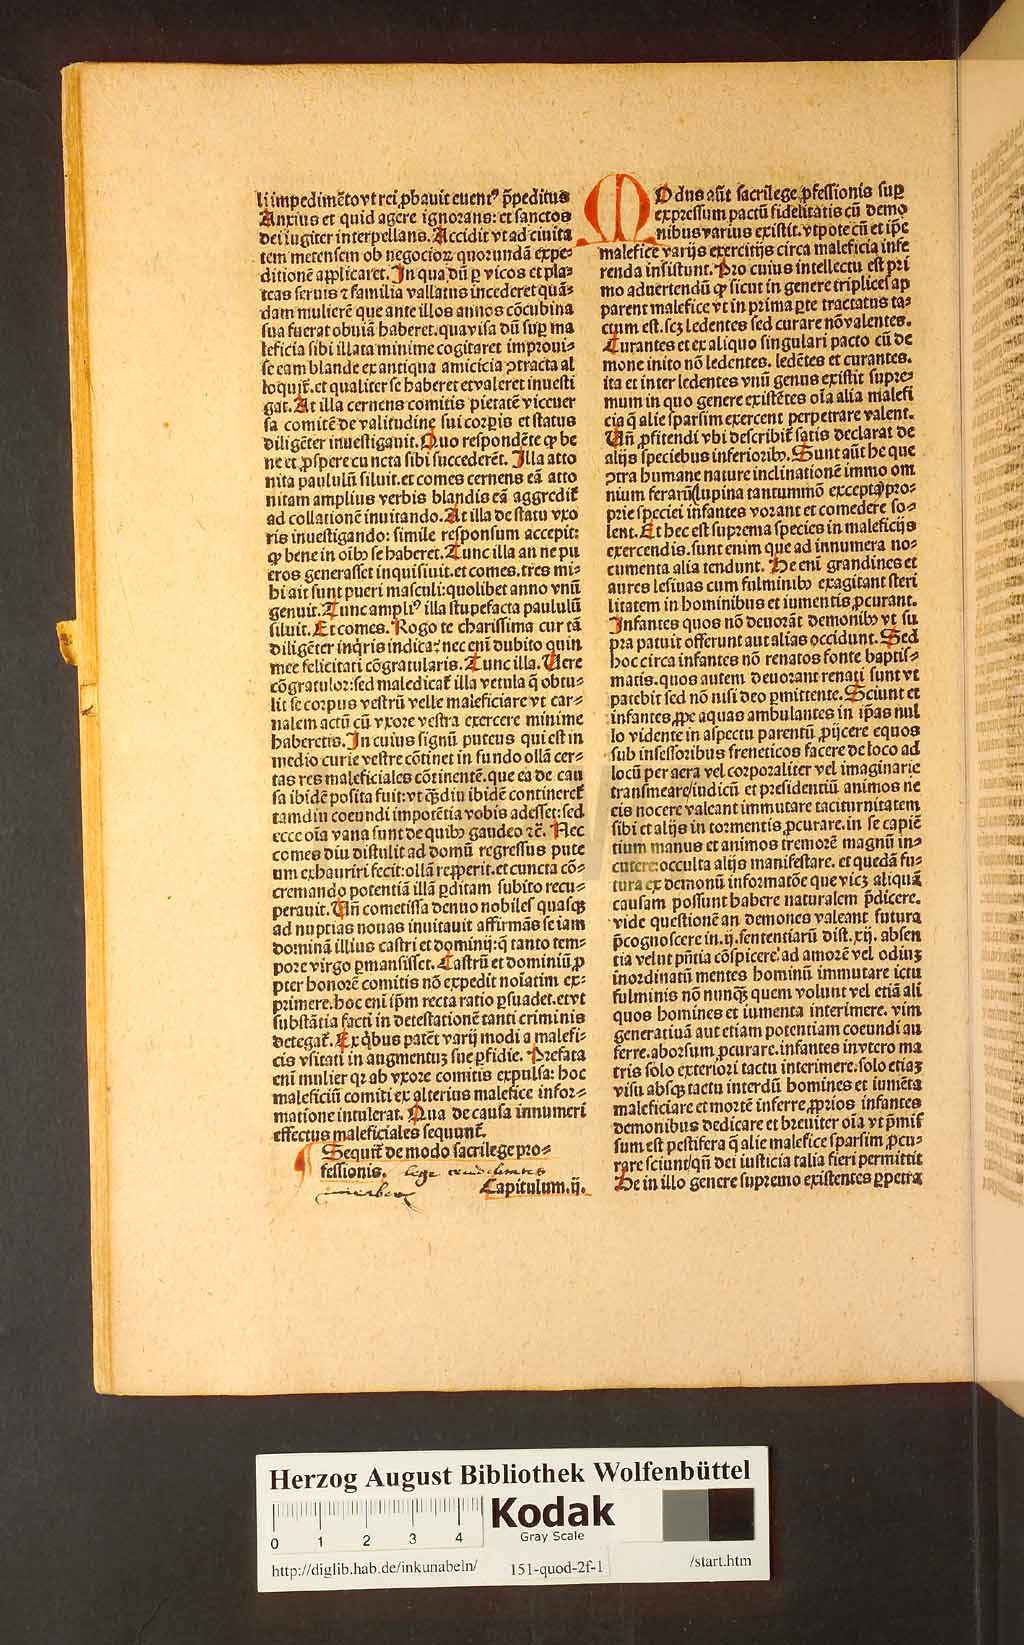 li impedimēto vt rei ꝓbauit euentꝰ p̄peditus
Anxius et quid agere ignorans: et sanctos
dei iugiter interpellans. Accidit vt ad ciuita
tem metensem ob negocioꝝ quorundā expe⸗
ditionē applicaret. In qua dū ꝑ vicos et pla⸗
teas seruis ⁊ familia vallatus incederet quā⸗
dam mulierē que ante illos annos cōcubina
sua fuerat obuiā haberet. qua visa dū suꝑ ma
leficia sibi illata minime cogitaret improui⸗
se eam blande ex antiqua amicicia ꝯtracta al
loquit̄. et qualiter se haberet et valeret inuesti
gat. At illa cernens comitis pietatē viceuer
sa comitē de valitudine sui corꝑis et status
diligēter inuestigauit. Quo respondēte ꝙ be
ne et ꝓspere cuncta sibi succederēt. Illa atto
nita paululū siluit. et comes cernens eā atto
nitam amplius verbis blandis eā aggredit̄
ad collationē inuitando. At illa de statu vxo
ris inuestigando: simile responsum accepit:
ꝙ bene in oībꝫ se haberet. Tunc illa an ne pu
eros generasset inquisiuit. et comes. tres mi⸗
hi ait sunt pueri masculi: quolibet anno vnū
genuit. Tunc ampliꝰ illa stupefacta paululū
siluit. Et comes. Rogo te charissima cur tā
diligēter inq̄ris indica: nec enī dubito quin
mee felicitati cōgratularis. Tunc illa. Uere
cōgratulor: sed maledicat̄ illa vetula q̄ obtu⸗
lit se corpus vestrū velle maleficiare vt car⸗
nalem actū cū vxore vestra exercere minime
haberetis. In cuius signū puteus qui est in
medio curie vestre cōtinet in fundo ollā cer⸗
tas res maleficiales cōtinentē. que ea de cau
sa ibidē posita fuit: vt q̄ꝫdiu ibidē contineret̄
tamdiu coeundi impotētia vobis adesset: sed
ecce oīa vana sunt de quibꝫ gaudeo ⁊c̄. Nec
comes diu distulit ad domū regressus pute
um exhauriri fecit: ollā repperit. et cuncta cō⸗
cremando potentiā illā ꝑditam subito recu⸗
perauit. Un̄ cometissa denuo nobiles quasꝗꝫ
ad nuptias nouas inuitauit affirmās se iam
dominā illius castri et dominij: q̄ tanto tem⸗
pore virgo ꝑmansisset. Castrū et dominiū ꝓ
pter honorē comitis nō expedit noīatim ex⸗
primere. hoc enī ip̄m recta ratio ꝑsuadet. et vt
substātia facti in detestationē tanti criminis
detegat̄. Ex q̄bus patēt varij modi a malefi⸗
cis vsitati in augmentuꝫ sue ꝑfidie. Prefata
enī mulier qꝛ ab vxore comitis expulsa: hoc
maleficiū comiti ex alterius malefice infor⸗
matione intulerat. Qua de causa innumeri
effectus maleficiales sequunt̄.
¶ Sequit̄ de modo sacrilege pro⸗
fessionis.
Capitulum. ij.
MOdus aūt sacrilege ꝓfessionis suꝑ
expressum pactū fidelitatis cū demo
nibus varius existit. vtpote cū et ip̄e
malefice varijs exercitijs circa maleficia infe
renda insistunt. Pro cuius intellectu est pri
mo aduertendū ꝙ sicut in genere triplices ap
parent malefice vt in prima ꝑte tractatus ta⸗
ctum est. scꝫ ledentes sed curare nō valentes.
Curantes et ex aliquo singulari pacto cū de
mone inito nō ledentes. ledētes et curantes.
ita et inter ledentes vnū genus existit supre⸗
mum in quo genere existētes oīa alia malefi
cia q̄ alie sparsim exercent perpetrare valent.
Un̄ ꝓfitendi vbi describit̄ satis declarat de
alijs speciebus inferioribꝫ. Sunt aūt he que
ꝯtra humane nature inclinationē immo om
nium ferarū (lupina tantummō excepta) pro⸗
prie speciei infantes vorant et comedere so⸗
lent. Et hec est suprema species in maleficijs
exercendis. sunt enim que ad innumera no⸗
cumenta alia tendunt. He enī grandines et
aures lesiuas cum fulminibꝫ exagitant steri
litatem in hominibus et iumentis ꝓcurant.
Infantes quos nō deuorāt demonibꝫ vt su
pra patuit offerunt aut alias occidunt. Sed
hoc circa infantes nō renatos fonte baptis⸗
matis. quos autem deuorant renati sunt vt
patebit sed nō nisi deo ꝑmittente. Sciunt et
infantes ꝓpe aquas ambulantes in ip̄as nul
lo vidente in aspectu parentū ꝓijcere equos
sub insessoribus freneticos facere de loco ad
locū per aera vel corporaliter vel imaginarie
transmeare/ iudicū et presidentiū animos ne
eis nocere valeant immutare taciturnitatem
sibi et alijs in tormentis ꝓcurare. in se capiē
tium manus et animos tremorē magnū in⸗
cutere: occulta alijs manifestare. et quedā fu⸗
tura ex demonū informatōe que vicꝫ aliquā
causam possunt habere naturalem p̄dicere.
vide questionē an demones valeant futura
p̄cognoscere in. ij. sententiarū dist. xij. absen
tia velut pn̄tia cōspicere: ad amorē vel odiuꝫ
inordinatū mentes hominū immutare ictu
fulminis nō nunqꝫ quem volunt vel etiā ali
quos homines et iumenta interimere. vim
generatiuā aut etiam potentiam coeundi au
ferre. aborsum ꝓcurare. infantes in vtero ma
tris solo exteriori tactu interimere. solo etiaꝫ
visu absqꝫ tactu interdū homines et iumēta
maleficiare et mortē inferre. ꝓprios infantes
demonibus dedicare et breuiter oīa vt p̄mis
sum est pestifera q̄ alie malefice sparsim ꝓcu⸗
rare sciunt/ qn̄ dei iusticia talia fieri permittit
He in illo genere supremo existentes ꝑpetra
Herzog August Bibliothek Wolfenbüttel
0 1 2 3 4
Kodak
Gray Scale
http://diglib.hab.de/inkunabeln/ 151-quod-2f-1 /start.htm